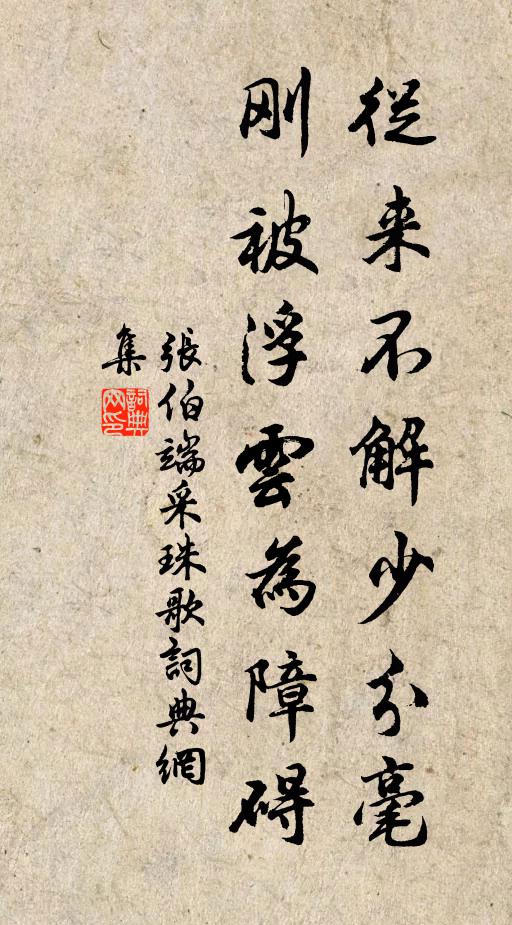 從来不解少分毫
刚被浮雲為障碍
張伯端采珠歌詞典網
集
詞典
网印